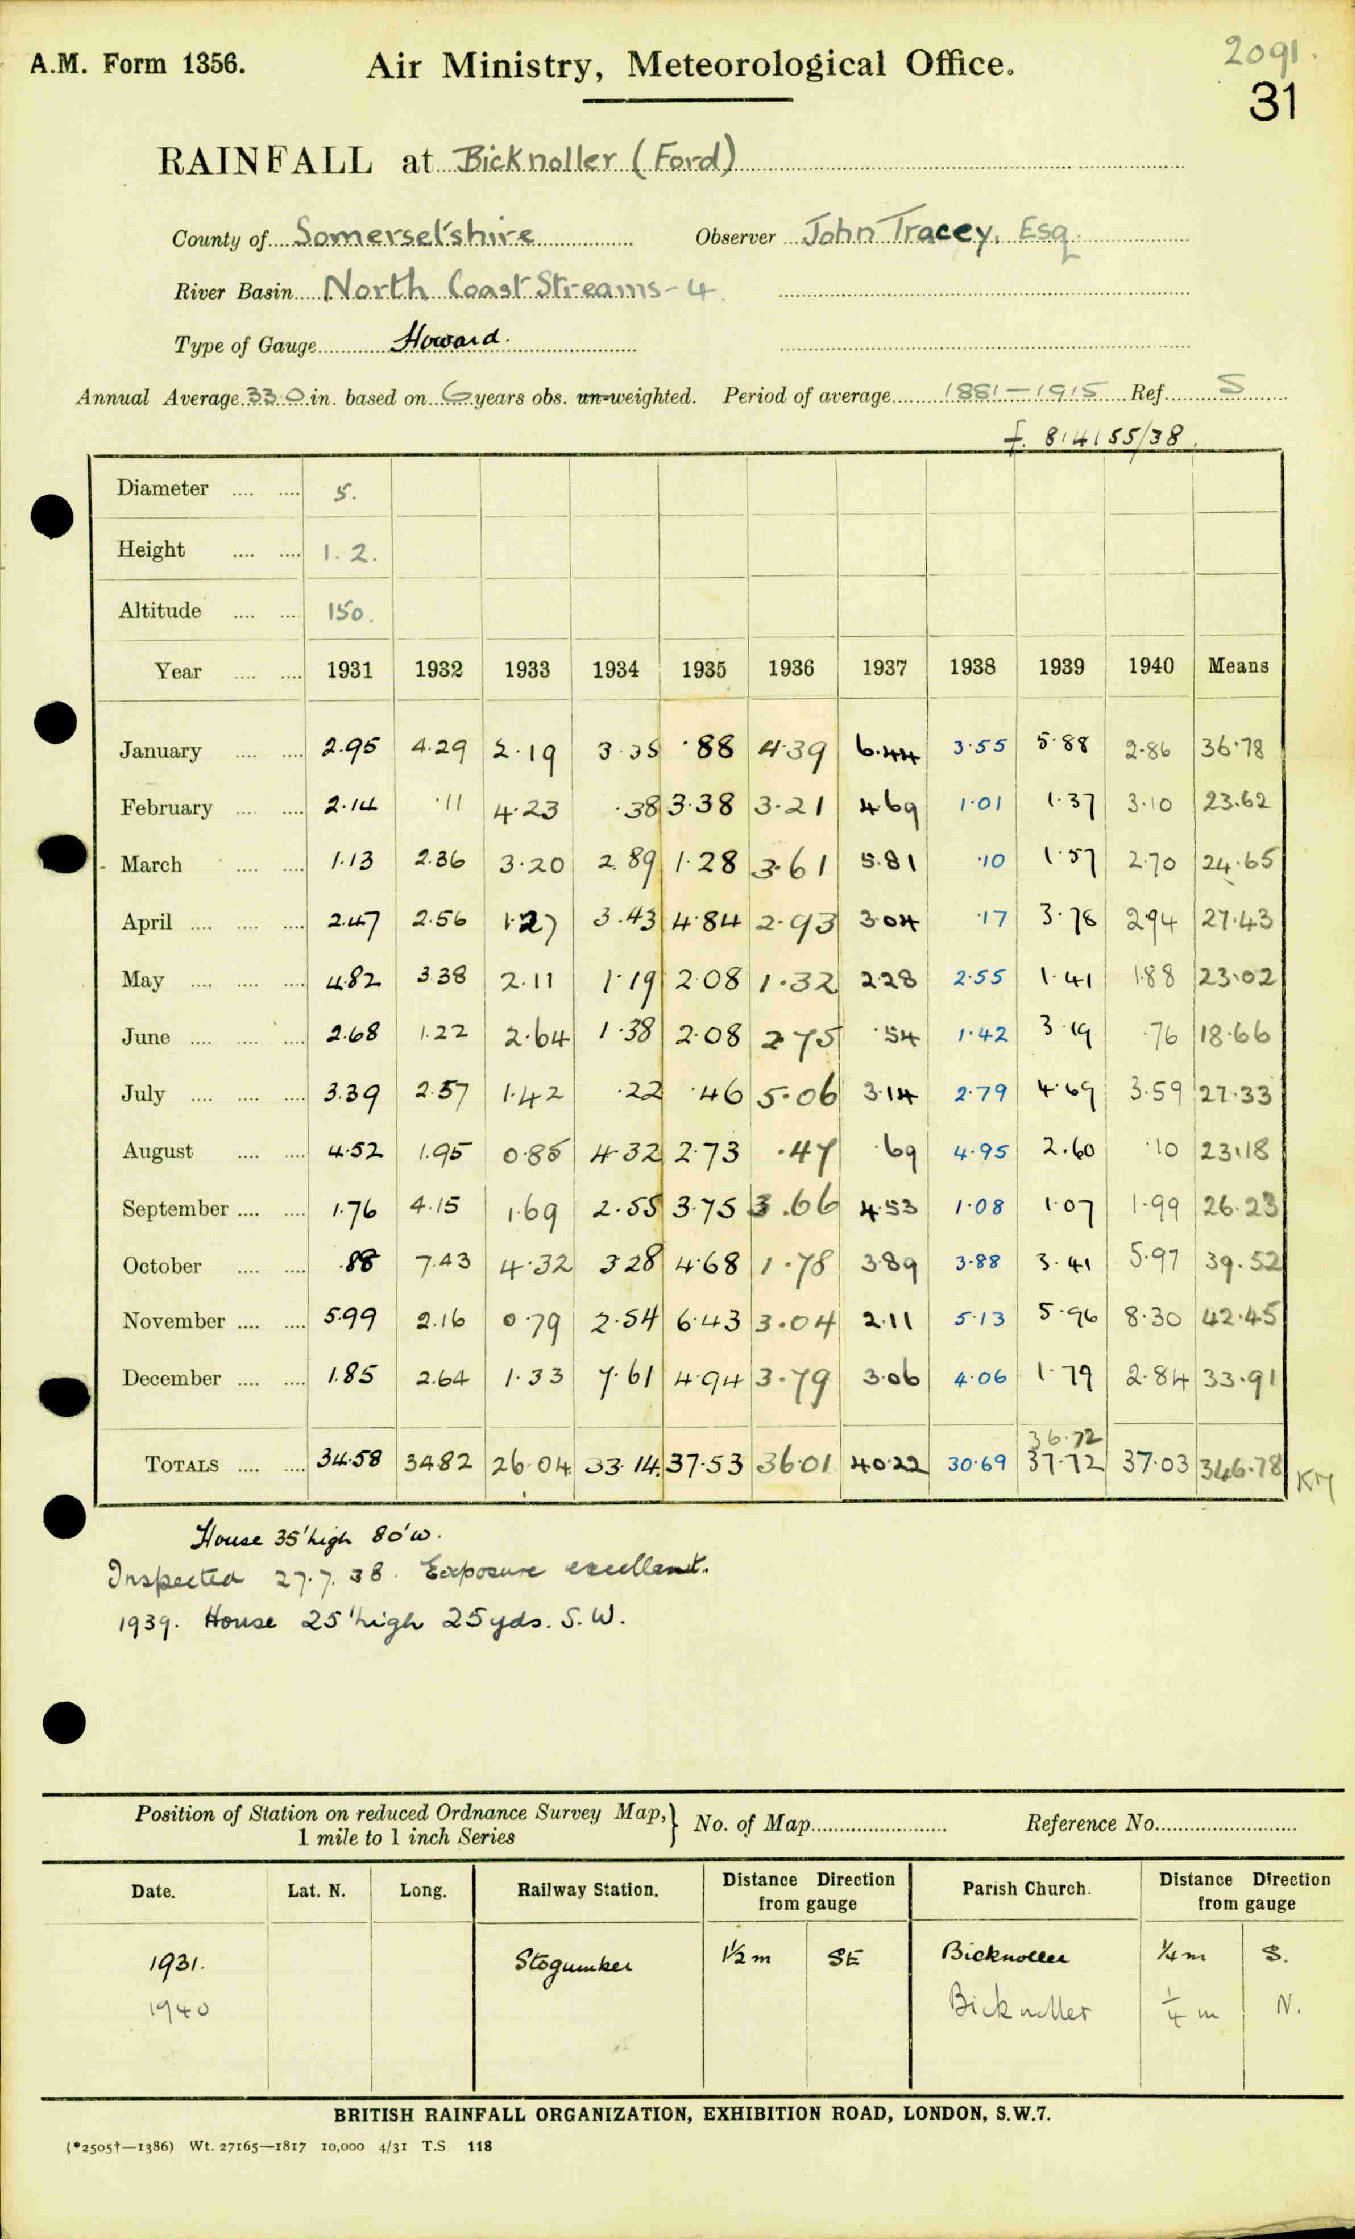 A.M. Form 1356. Air Ministry, Meteorological Office. 2091.
31
RAINFALL at Bicknoller (Ford)
County of Somerset'shire Observer John Tracey, Esq.
River Basin North Coast Streams - 4
Type of Gauge Howard.
Annual Average 33.0 in. based on 6 years obs. un-weighted. Period of average 1881-1915 Ref. S
f. 814155/38.
Diameter .... .... 5.
Height .... .... 1.2.
Altitude .... .... 150.
Year .... .... 1931 1932 1933 1934 1935 1936 1937 1938 1939 1940 Means
January .... .... 2.95 4.29 2.19 3.35 .88 4.39 6.44 3.55 5.88 2.86 36.78
February .... .... 2.14 .11 4.23 .38 3.38 3.21 4.69 1.01 1.37 3.10 23.62
March .... .... 1.13 2.36 3.20 2.89 1.28 3.61 5.81 .10 1.57 2.70 24.65
April .... .... .... 2.47 2.56 1.27 3.43 4.84 2.93 3.04 .17 3.78 2.94 27.43
May .... .... .... 4.82 3.38 2.11 1.19 2.08 1.32 2.28 2.55 1.41 1.88 23.02
June .... .... .... 2.68 1.22 2.64 1.38 2.08 2.75 .54 1.42 3.19 .76 18.66
July .... .... .... 3.39 2.57 1.42 .22 .46 5.06 3.14 2.79 4.69 3.59 27.33
August .... .... 4.52 1.95 0.85 4.32 2.73 .47 .69 4.95 2.60 .10 23.18
September .... .... 1.76 4.15 1.69 2.55 3.75 3.66 4.53 1.08 1.07 1.99 26.23
October .... .... .88 7.43 4.32 3.28 4.68 1.78 3.89 3.88 3.41 5.97 39.52
November .... .... 5.99 2.16 0.79 2.54 6.43 3.04 2.11 5.13 5.96 8.30 42.45
December .... .... 1.85 2.64 1.33 7.61 4.94 3.79 3.06 4.06 1.79 2.84 33.91
36.72
TOTALS .... .... 34.58 34.82 26.04 33.14 37.53 36.01 40.22 30.69 37.72 37.03 346.78 KM
House 35' high 80' W.
Inspected 27.7.38. Exposure excellent.
1939. House 25' high 25 yds. S.W.
Position of Station on reduced Ordnance Survey Map, } No. of Map Reference No.
1 mile to 1 inch Series
Date. Lat. N. Long. Railway Station. Distance Direction from gauge Parish Church. Distance Direction from gauge
1931. Stogumber 1½ m SE Bicknoller ¼ m S.
1940 Bicknoller ¼ m N.
BRITISH RAINFALL ORGANIZATION, EXHIBITION ROAD, LONDON, S.W.7.
(*2505†—1386) Wt. 27165—1817 10,000 4/31 T.S. 118